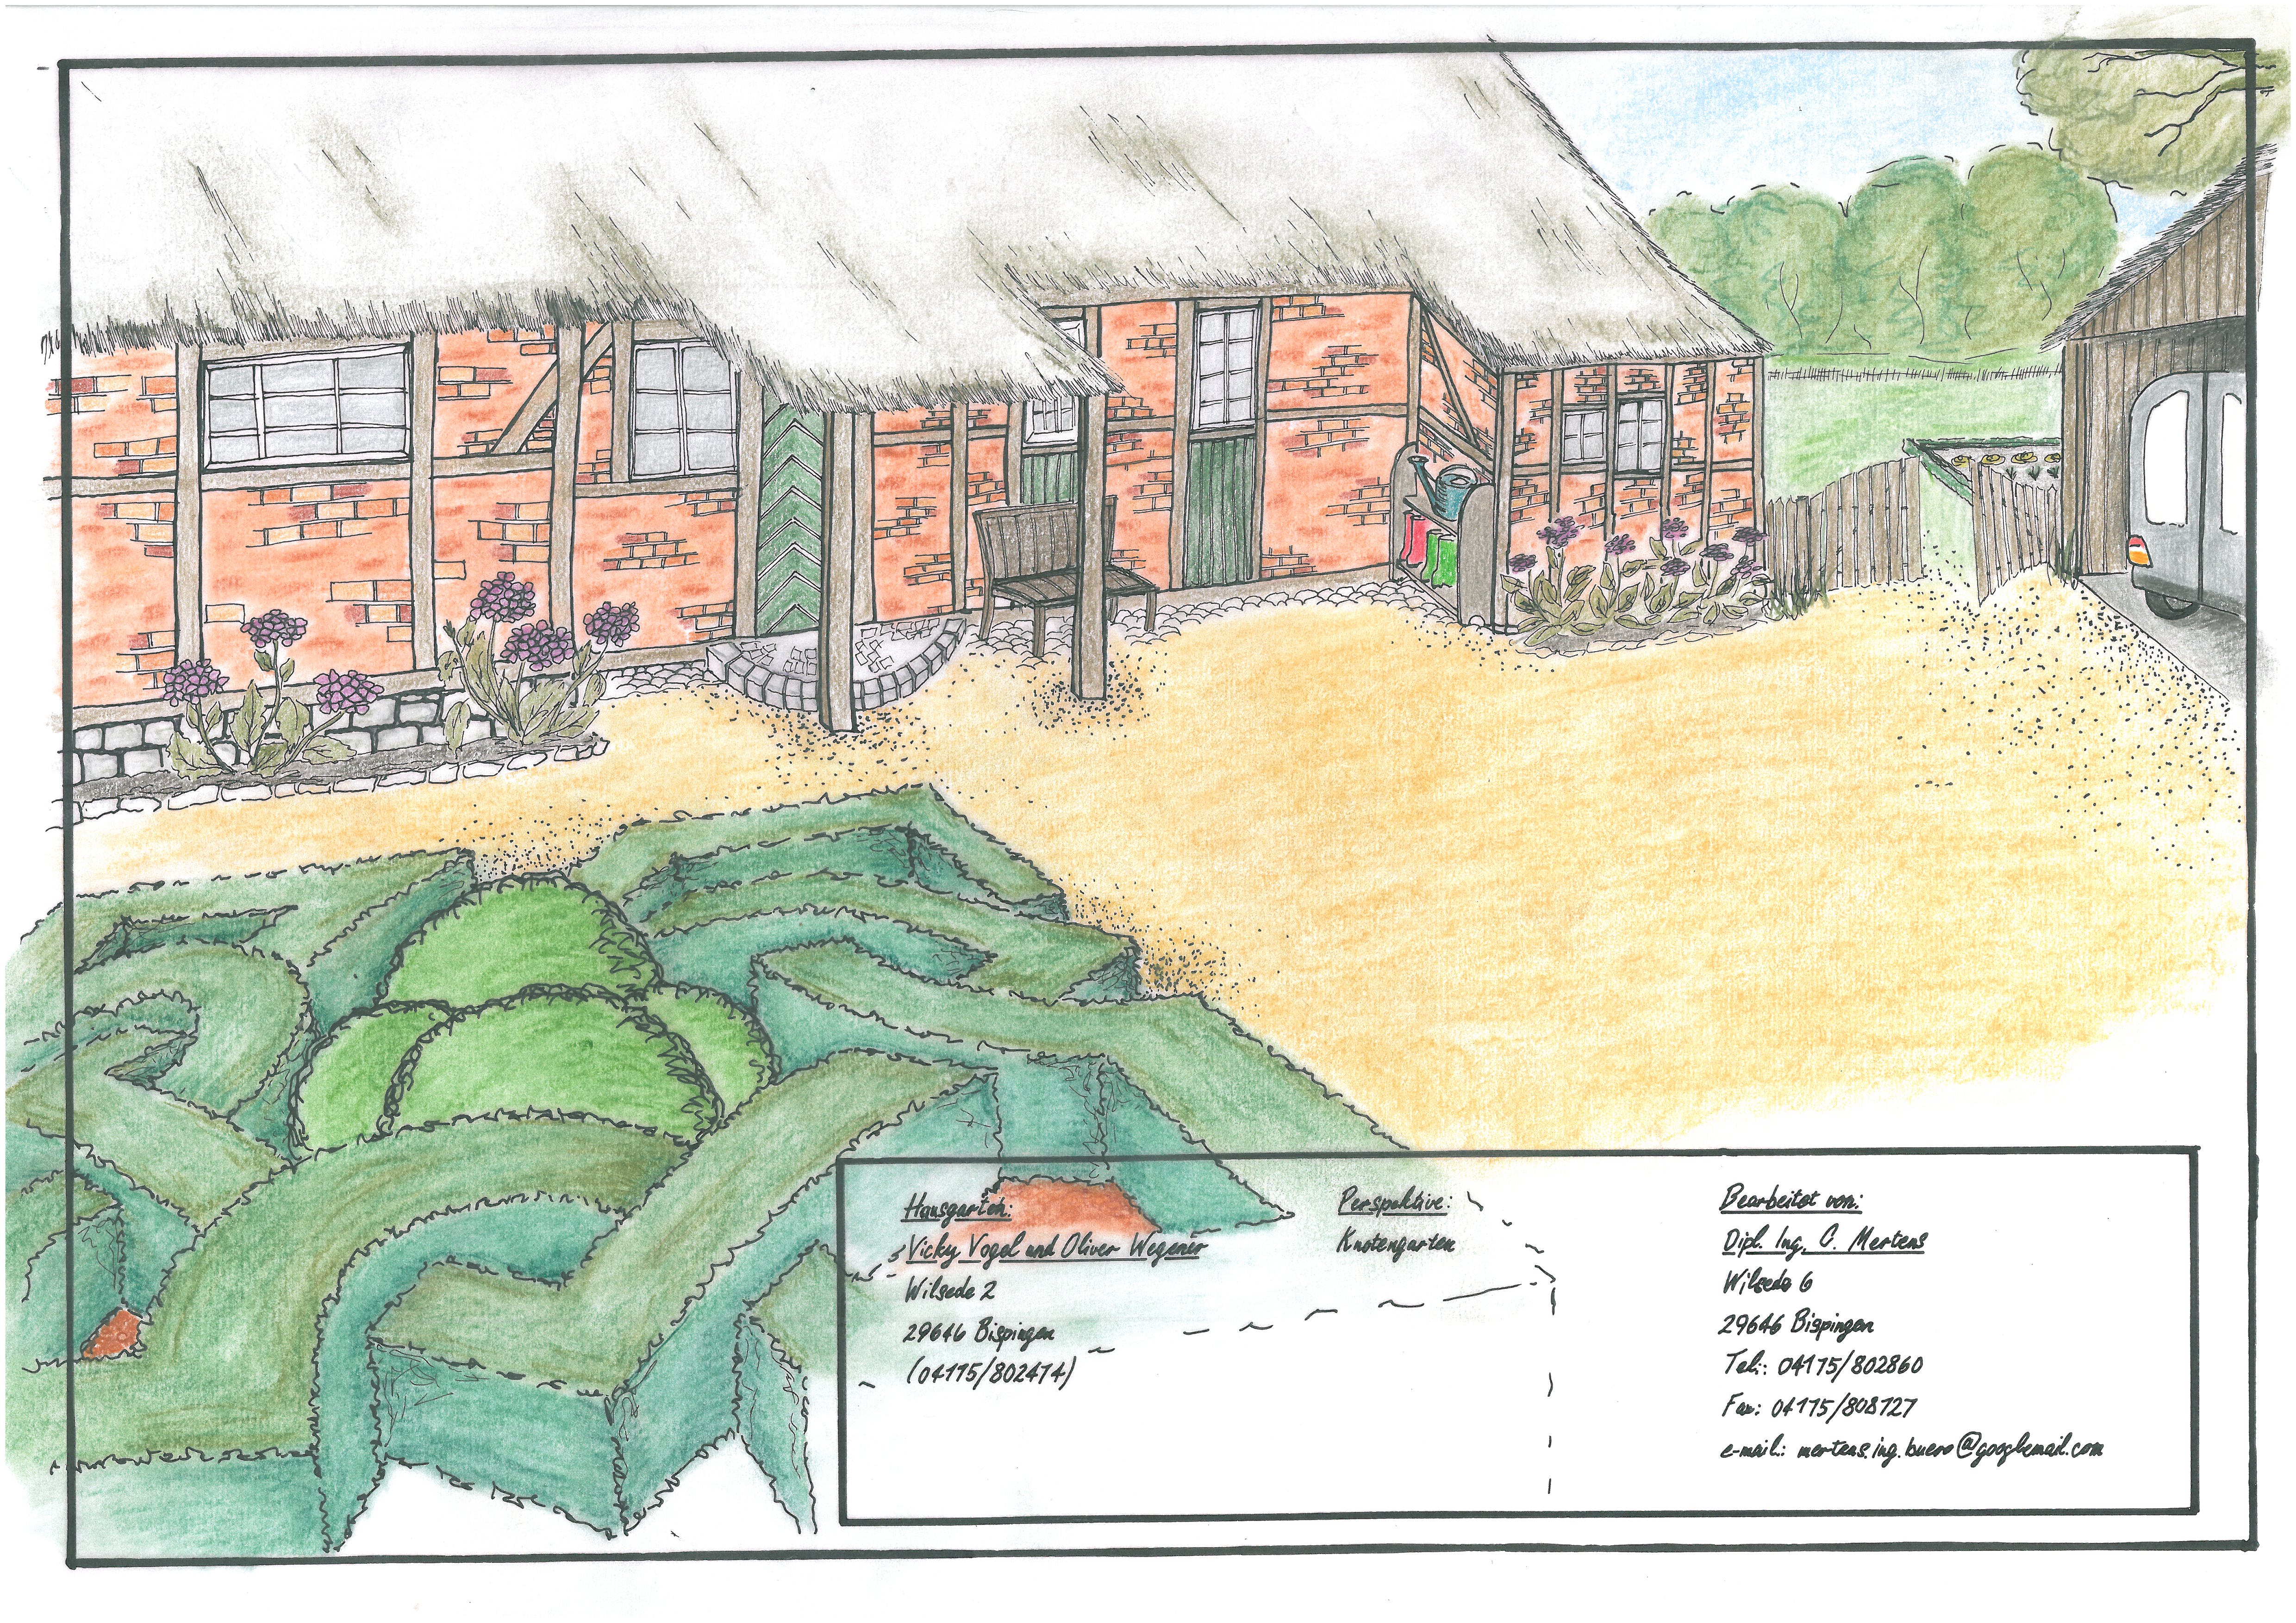 Hausgarten:
Vicky Vogel und Oliver Wegener
Wilsede 2
29646 Bispingen
(04175/802474)
Perspektive:
Knotengarten
Bearbeitet von:
Dipl. Ing. C. Mertens
Wilsede 6
29646 Bispingen
Tel.: 04175/802860
Fax: 04175/808727
e-mail: mertens.ing.buero@googlemail.com